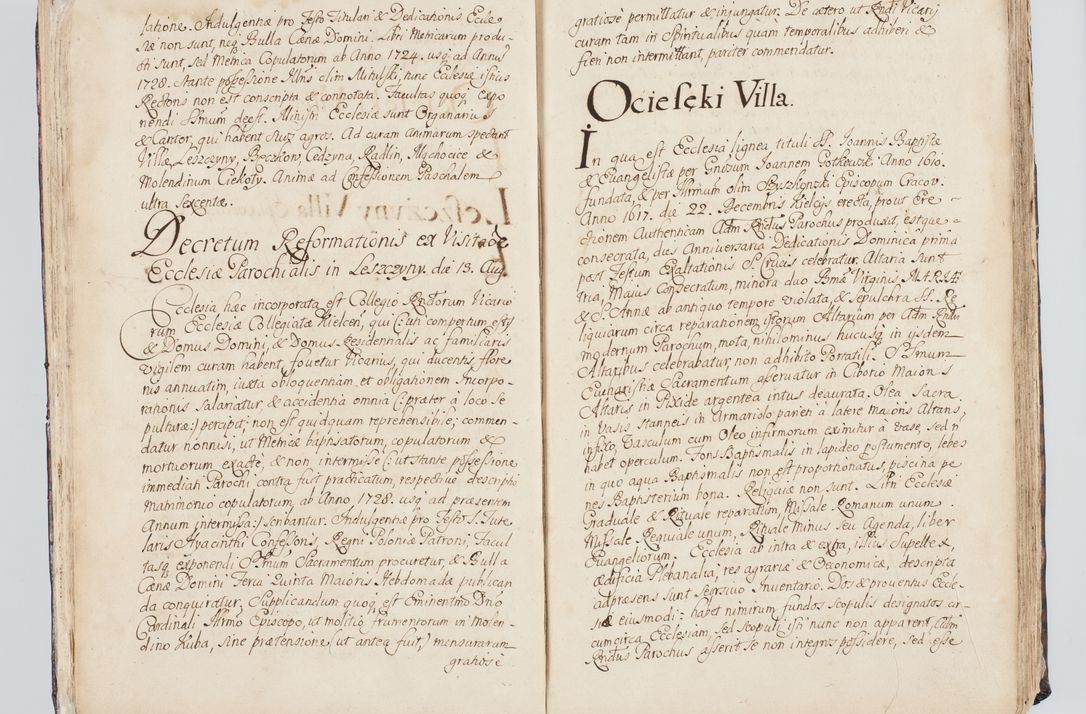 latione. Indulgentiæ pro Festo Titulari & Dedicationis Eccle
siæ non sunt, neq; Bulla Cœnæ Domini. Libri Metricarum produ-
cti sunt, sed Metrica Copulatorum ab Anno 1724. usq; ad Annũ
1728. stante possessione Illris olim Mitulski, tunc Ecclesiæ istius
Rectoris non est conscripta & connotata. Facultas quoq; expo
nendi SSmum deest. Ministri Ecclesiæ sunt Organarius
& Cantor, qui habent suos agros. Ad curam animarum spectant
Villæ Leszczyny, Bęczkow, Cedzyna, Radlin, Mąchocice &
Molendinum Ciekoty. Animæ ad Confessionem Paschalem
ultra sexcentæ.
Decretum Reformationis ex Visitaõe
Ecclesiæ Parochialis in Leszczyny. die 13. Aug.
Ecclesia hæc incorporata est Collegio Rndorum Vicario
rum Ecclesiæ Collegiatæ Kielcen, qui (: uti compertum est :)
& Domus Domini, & Domus residentialis ac familiaris
vigilem curam habent, fovetur Vicarius, qui ducentis flore
nis annuatim, iuxta obloquentiam et obligationem Incorpo-
rationis salariatur, & accidentia omnia (: præter à loco se
pulturæ :) percipit; non est quidquam reprehensibile; commen-
datur nonnisi, ut Metricæ baptisatorum, copulatorum &
mortuorum exactè, & non intermissè (: ut stante possessione
immediati Parochi contra fuit practicatum, respectivè descriptis
matrimonio copulatorum, ab Anno 1728. usq; ad præsentem
Annum intermissa :) scribantur. Indulgentiæ pro Festo S. Tute
laris Hyacinthi Confessoris, Regni Poloniæ Patroni, Facul
tasq; exponendi SSmum Sacramentum procuretur, & Bulla
Cœnæ Domini Feria Quinta Maioris Hebdomada publican
da conquiratur; Supplicandum quoq; est Eminentmo Dno
Cardinali Illrmo Episcopo, ut molitio frumentorum in Molen-
dino Kuba, sine prætensione (ut antea fuit,) mensurarum
gratiosè
gratiosè permittatur & injungatur. De cætero ut Rendi Vicarij
curam tam in Spiritualibus quàm temporalibus adhiberi &
fieri non intermittant, pariter commendatur.
Ocieseki Villa.
In qua est Ecclesia lignea tituli SS. Joannis Baptistæ
& Evangelistæ per Gnosum Joannem Gotkowski Anno 1610.
fundata, & per Illrmum olim Szyszkowski Episcopum Cracov.
Anno 1617. die 22. Decembris Kielcijs erecta, prout Ere-
ctionem Authenticam Adm Rndus Parochus produxit, estque
consecrata, dies Anniversaria Dedicationis Dominica prima
post Festum Exaltationis S. Crucis celebratur. Altaria sunt
tria, Maius Consecratum, minora duo Bmæ Virginis MARIÆ
& S. Annæ ab antiquo tempore violata, & sepulchra SS. Re
liquiarum circa reparationem istorum Altarium per Adm Rndũ
modernum Parochum, mota, nihilominus hucusq; in ijsdem
Altaribus celebrabatur, non adhibito Portatili. SSmum
Eucharistiæ Sacramentum asservatur in Ciborio Maioris
Altaris in Pixide argentea intus deaurata. Olea Sacra
in Vasis stanneis in Armariolo parieti à latere maioris Altaris,
infixo, Vasculum cum Oleo infirmorum eximitur à Vase, sed ñ
habet operculum. Fons Baptismalis in lapideo postumento, lebes
in quo aqua Baptismalis non est proportionatus, piscina pe
nes Baptisterium bona. Reliquiæ non sunt. Libri Ecclesiæ
Graduale & Rituale reparatum, Missale Romanum unum
Missale Requiale unum, Rituale Minus seu Agenda, liber
Evangeliorum. Ecclesia ab intra & extra, illius Supellex,
ædificia Plebanalia, res agrariæ & Oeconomicæ, descripta
adpræsens sunt seorsivo Inventario. Dos & proventus Eccle-
siæ eiusmodi: habet nimirum fundos scopulis designatos cir-
cumcirca Ecclesiam, sed scopuli isti nunc non apparent, Adm
Rndus Parochus asserit se non integrè possidere, sed esse